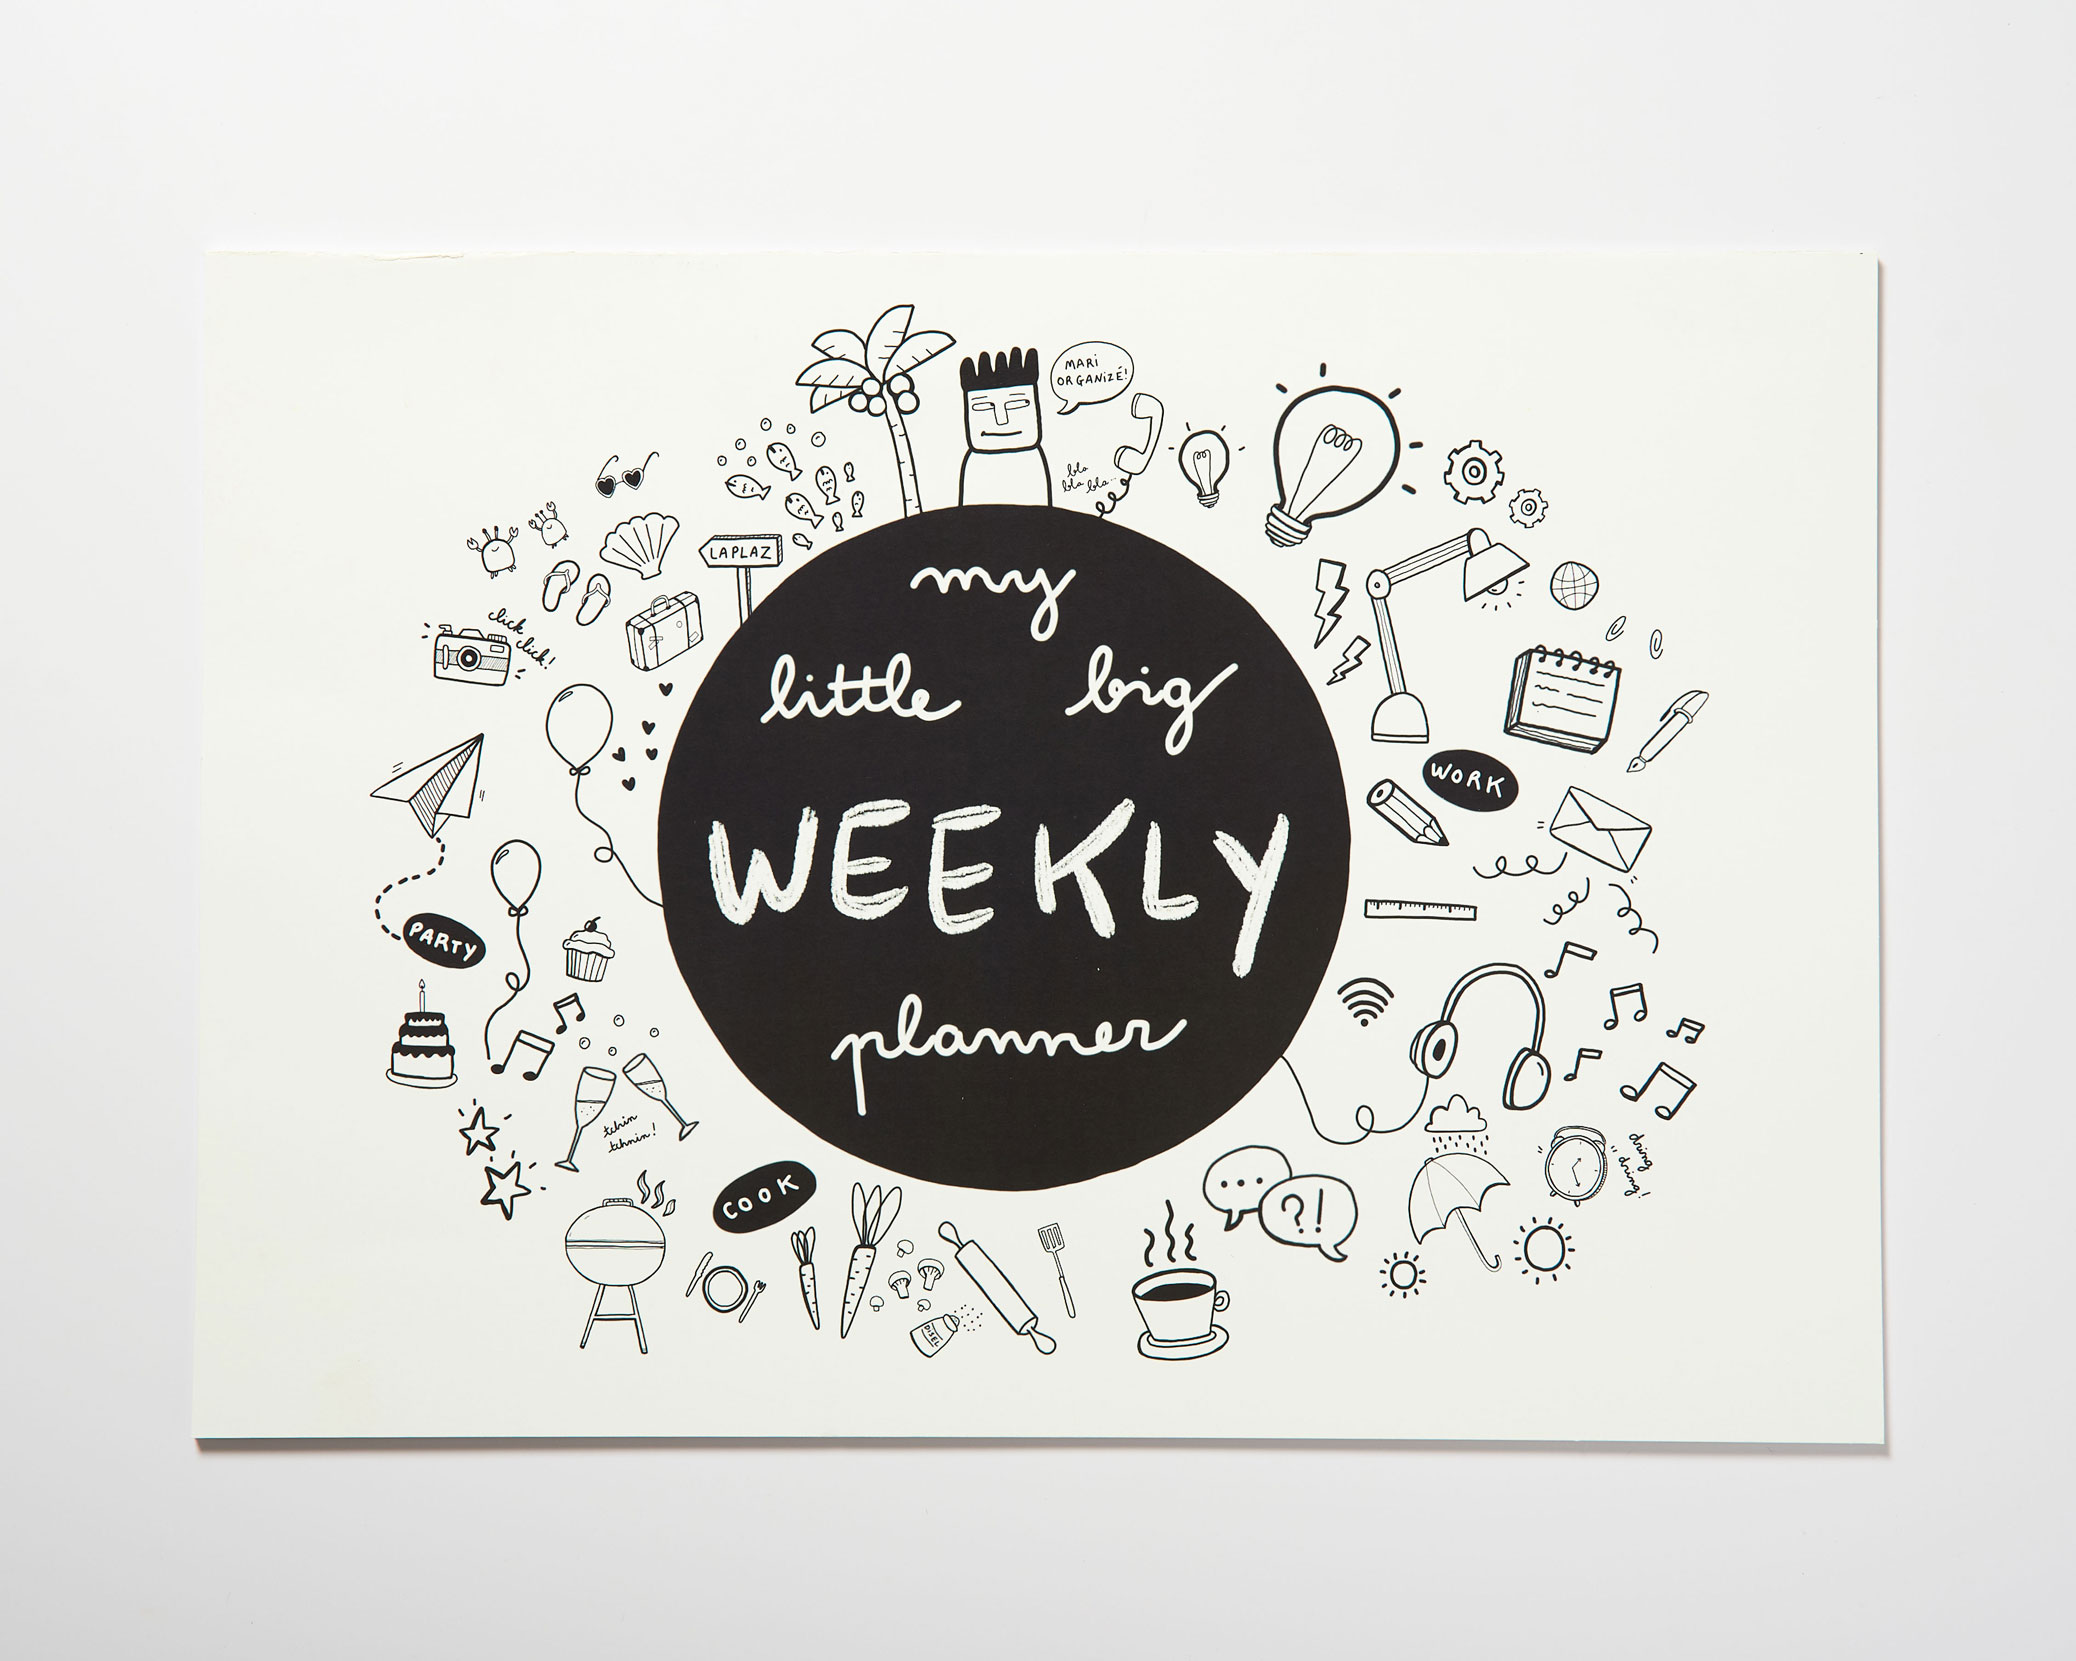 MARI
ORGANIZÉ!
bla
bla bla...
LAPLAZ
click
click!
my
little big
WEEKLY
planner
WORK
PARTY
tchin
tchnin!
COOK
DISEL
?!
dring
dring!